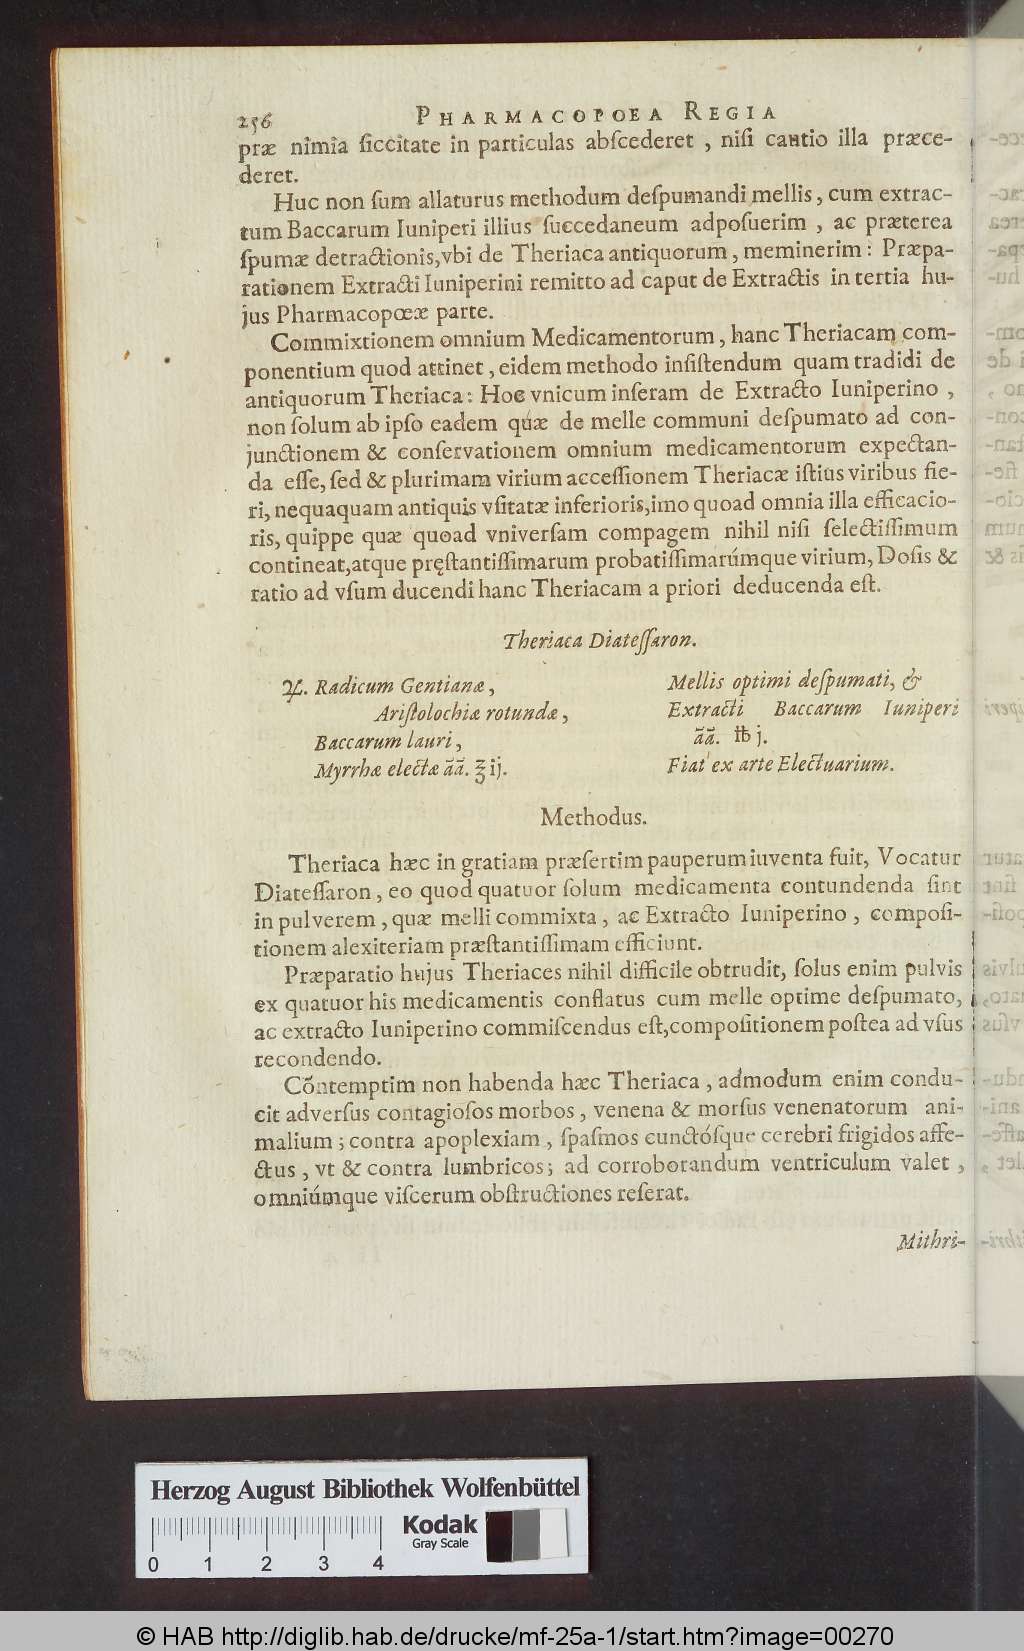 256 PHARMACOPOEA REGIA
præ nimia ſiccitate in particulas abſcederet , niſi cautio illa præce-
deret.
Huc non ſum allaturus methodum deſpumandi mellis, cum extrac-
tum Baccarum Iuniperi illius ſuccedaneum adpoſuerim , ac præterea
ſpumæ detractionis,vbi de Theriaca antiquorum, meminerim: Præpa-
rationem Extracti Iuniperini remitto ad caput de Extractis in tertia hu-
jus Pharmacopœæ parte.
Commixtionem omnium Medicamentorum, hanc Theriacam com-
ponentium quod attinet, eidem methodo inſiſtendum quam tradidi de
antiquorum Theriaca: Hoc vnicum inferam de Extracto Iuniperino ,
non ſolum ab ipſo eadem quæ de melle communi deſpumato ad con-
junctionem & conſervationem omnium medicamentorum expectan-
da eſſe, ſed & plurimam virium acceſſionem Theriacæ iſtius viribus fie-
ri, nequaquam antiquis vſitatæ inferioris,imo quoad omnia illa efficacio-
ris, quippe quæ quoad vniverſam compagem nihil niſi ſelectiſſimum
contineat,atque pręſtantiſſimarum probatiſſimarúmque virium, Doſis &
ratio ad vſum ducendi hanc Theriacam a priori deducenda eſt.
Theriaca Diateſſaron.
℞. Radicum Gentianæ,
Ariſtolochiæ rotundæ,
Baccarum lauri,
Myrrhæ electæ a̅a̅. ℥ ij.
Mellis optimi deſpumati, &
Extracti Baccarum Iuniperi
a̅a̅. ℔ j.
Fiat ex arte Electuarium.
Methodus.
Theriaca hæc in gratiam præſertim pauperum iuventa fuit, Vocatur
Diateſſaron, eo quod quatuor ſolum medicamenta contundenda ſint
in pulverem, quæ melli commixta, ac Extracto Iuniperino, compoſi-
tionem alexiteriam præſtantiſſimam efficiunt.
Præparatio hujus Theriaces nihil difficile obtrudit, ſolus enim pulvis
ex quatuor his medicamentis conflatus cum melle optime deſpumato,
ac extracto Iuniperino commiſcendus eſt,compoſitionem poſtea ad vſus
recondendo.
Cõntemptim non habenda hæc Theriaca, admodum enim condu-
cit adverſus contagioſos morbos, venena & morſus venenatorum ani-
malium; contra apoplexiam, ſpaſmos cunctóſque cerebri frigidos affe-
ctus, vt & contra lumbricos; ad corroborandum ventriculum valet,
omniúmque viſcerum obſtructiones reſerat.
Mithri-
Herzog August Bibliothek Wolfenbüttel
Kodak
Gray Scale
0 1 2 3 4
© HAB http://diglib.hab.de/drucke/mf-25a-1/start.htm?image=00270